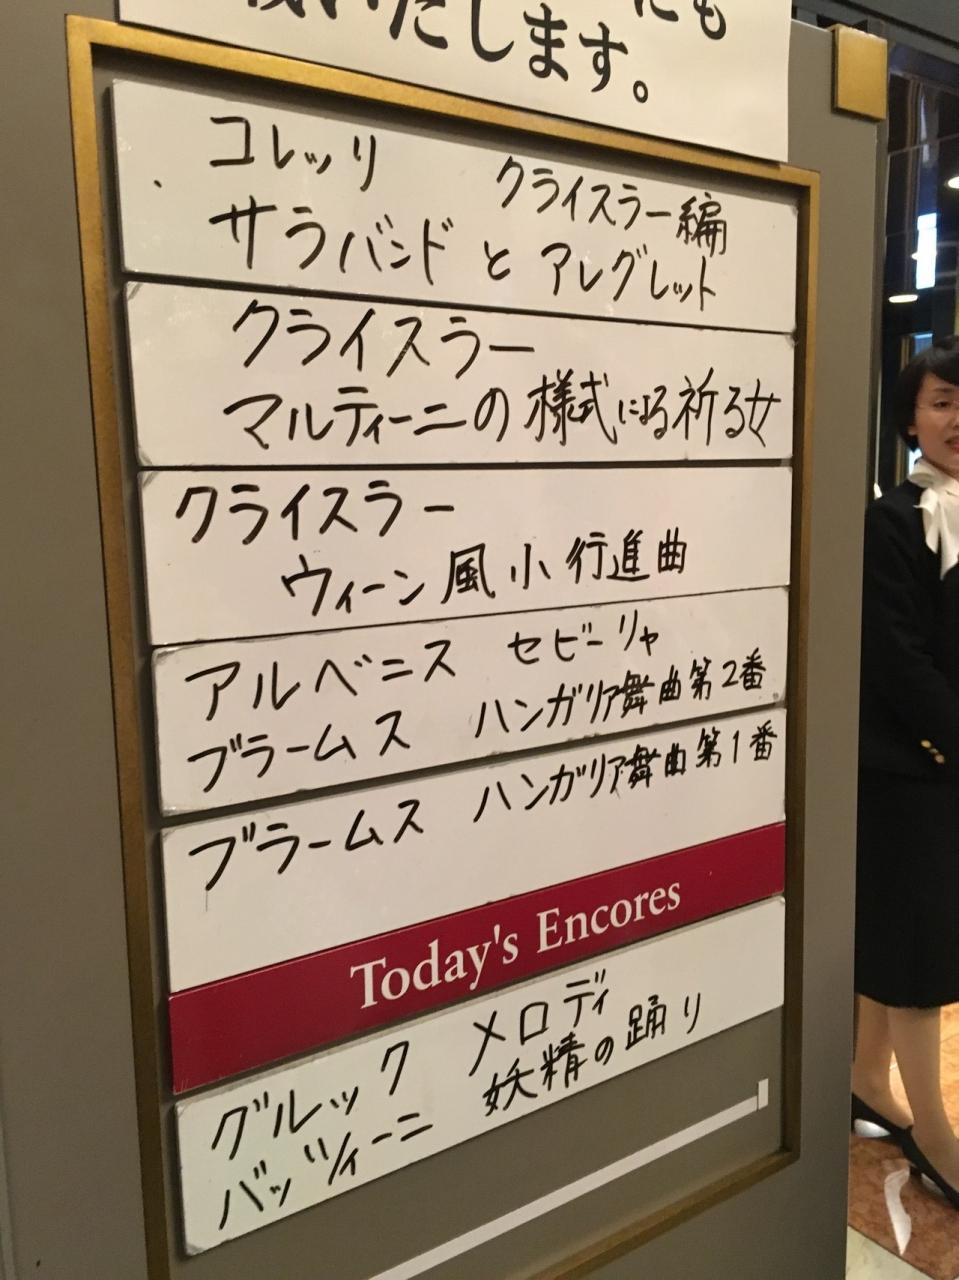 いたします。
コレッリ クライスラー編
サラバンド と アレグレット
クライスラー
マルティーニの様式による祈る女
クライスラー
ウィーン風小行進曲
アルベニス セビーリャ
ブラームス ハンガリア舞曲第2番
ブラームス ハンガリア舞曲第1番
Today's Encores
グルック メロディ
バッツィーニ 妖精の踊り